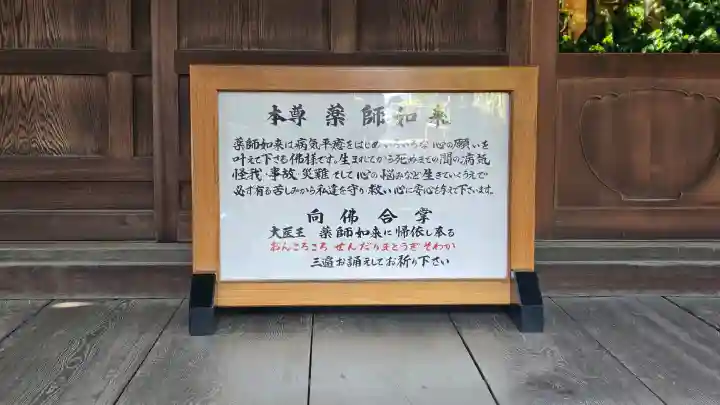 本尊 薬師如来
薬師如来は病気平癒をはじめいろいろな心の願いを
叶えて下さる佛様です。生まれてから死ぬまでの間の病気
怪我・事故・災難そして心の悩みなど生きていくうえで
必ず有る苦しみから私達を守り救い心に安心を与えて下さいます。
向佛合掌
大医王 薬師如来に帰依し奉る
おんころころ せんだりまとうぎ そわか
三遍お誦えしてお祈り下さい